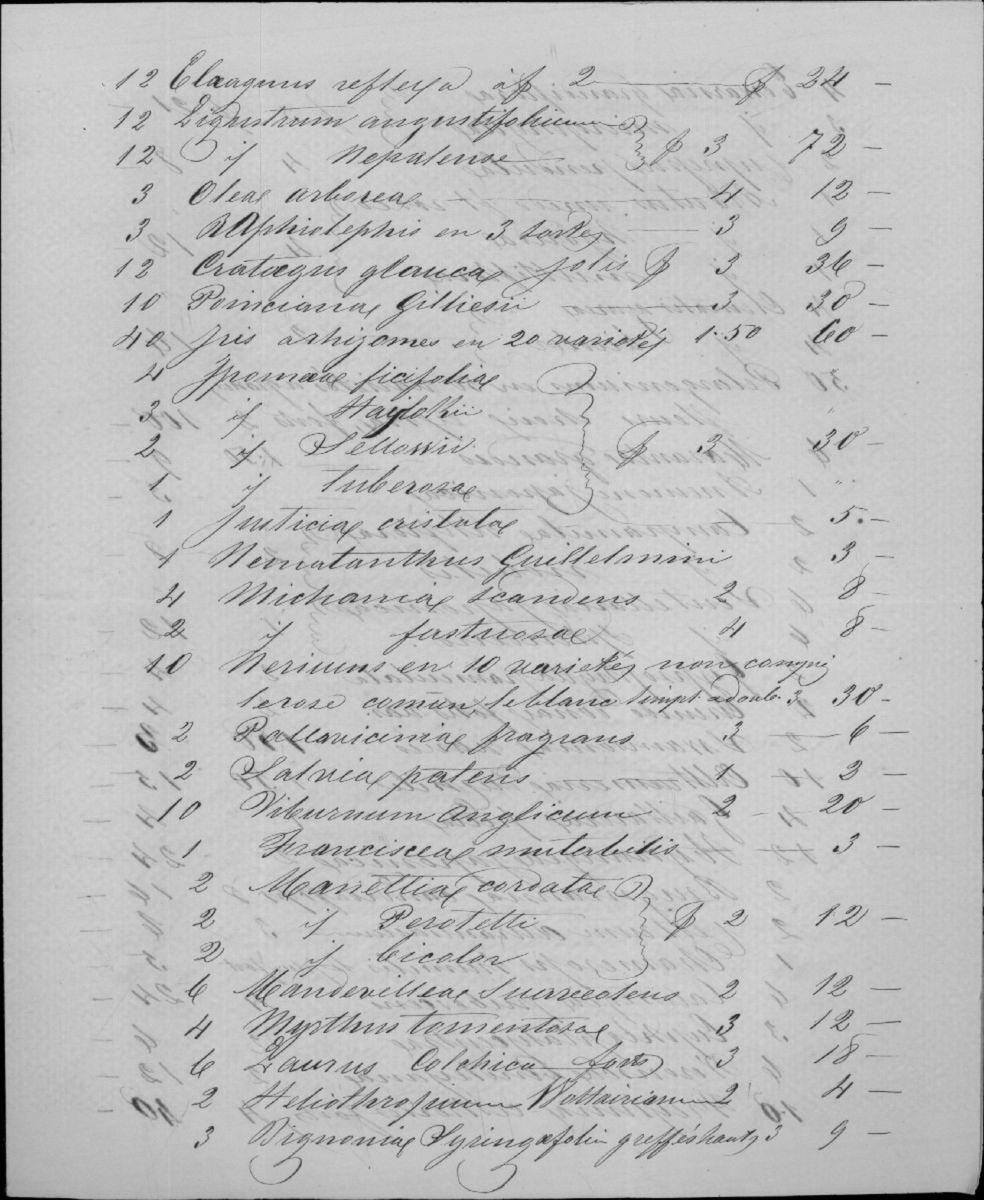 12 Elæagnus reflexa à ƒ 2 ƒ 24 —
12 Ligustrum angustifolium
12 if Nepalense ƒ 3 72 —
3 Oleae arboreae 4 12 —
3 RAphiolephis en 3 sortes 3 9 —
12 Cratægus glauca jolis ƒ 3 36 —
10 Poinciana Gilliesii 3 30 —
40 Iris à rhizomes en 20 variétés 1.50 60 —
4 Ipomæae ficifoliae
3 if
2 if Sellowii ƒ 3 30 —
1 if tuberosae
1 Justiciae cristatae 5. —
1 Nematanthus Guillelmini 3 —
4 Michaniae scandens 2 8 —
2 if fastuosae 4 8 —
10 Neriums en 10 variétés non compri
le rose comun le blanc simpl. 3 30 -
2 Pallaviciniae fragrans 3 — 6 —
2 Salviae patens 1 2 —
10 Viburnum Anglicum 2 — 20 —
1 Francisceae mutabilis — 3 —
2 Manettiae cordatae
2 if Perotetti ƒ 2 12 —
2 if bicolor
6 Mandevilleae Suaveolens 2 12 —
4 Myrthus tomentosae 3 12 —
6 Laurus Colchica forts 3 18 —
2 Heliothropium Voltairianum 2 4 —
3 Bignoniae Syringæfolia greffés hauts 3 9 —